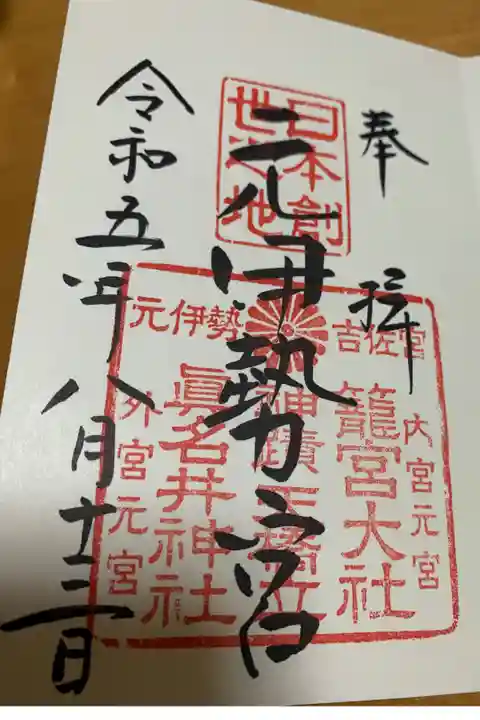 奉拝
日本創
世之地
元伊勢宮
元伊勢
吉佐宮
内宮元宮
籠宮大社
神蹟天橋立
眞名井神社
外宮元宮
令和五年八月十三日